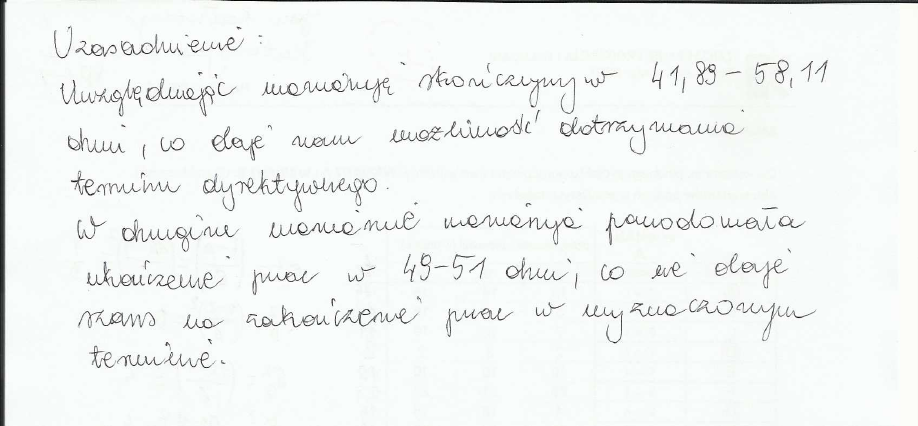 Uzasadnienie:
Uwzględniając wariancję skończymy w 41,89 – 58,11
dni, co daje nam możliwość dotrzymania
terminu dyrektywnego.
W drugim wariancie wariancja powodowała
ukończenie prac w 49-51 dni, co nie daje
szans na zakończenie prac w wyznaczonym
terminie.